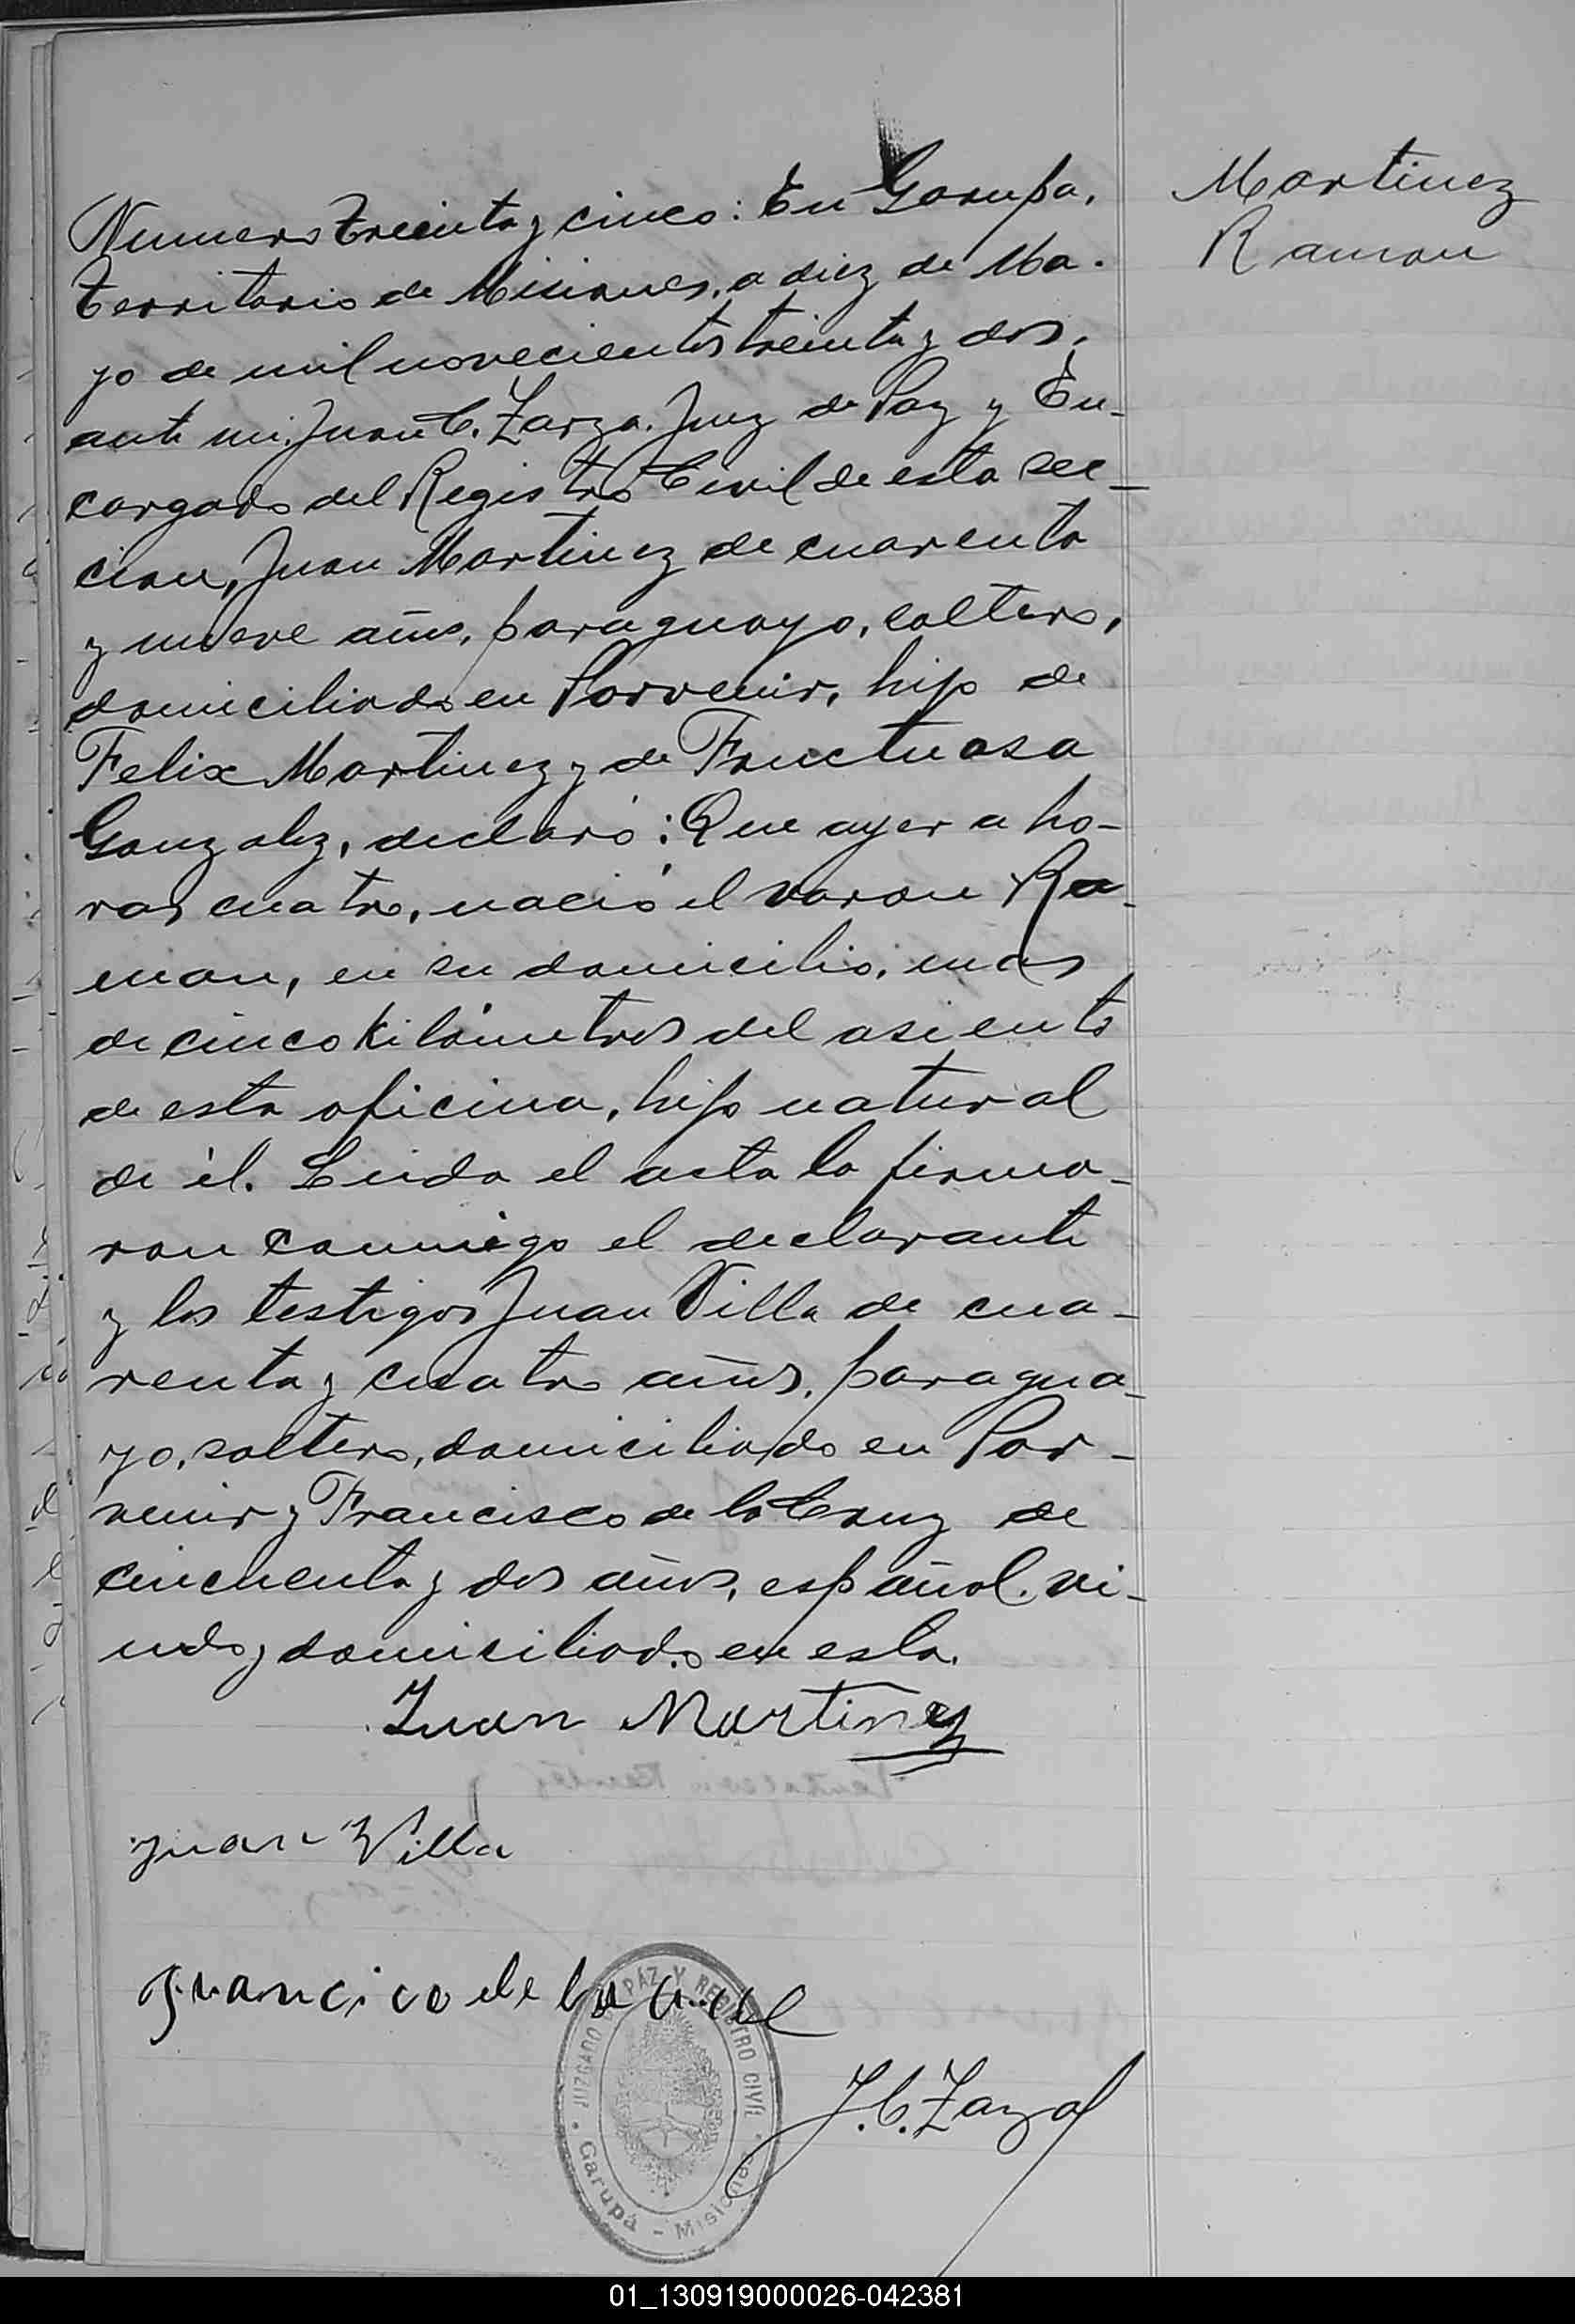 Martinez
Ramon
Numero treinta y cinco: En Garupa,
territorio de Misiones, a diez de Ma-
yo de mil novecientos treinta y dos,
ante mi, Juan C. Zarza, Juez de Paz y En-
cargado del Registro Civil de esta sec-
cion, Juan Martinez de cuarenta
y nueve años, paraguayo, soltero,
domiciliado en Porvenir, hijo de
Felix Martinez y de Fructuosa
Gonzalez, declaró: Que ayer a ho-
ras cuatro, nació el varon Ra-
mon, en su domicilio, mas
de cinco kilómetros del asiento
de esta oficina, hijo natural
de él. Leida el acta la firma-
ron conmigo el declarante
y los testigos Juan Villa de cua-
renta y cuatro años, paragua-
yo, soltero, domiciliado en Por-
venir y Francisco de la Cruz de
cincuenta y dos años, español, vi-
udo y domiciliado en esta.
Juan Martinez
Juan Villa
Francico de la
JUZGADO DE PAZ Y REGISTRO CIVIL
Garupá - Misiones
J. C. Zarza
01_130919000026-042381